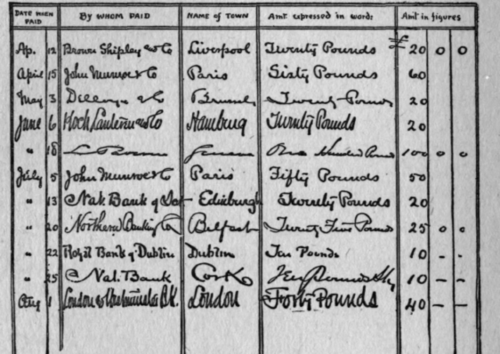 DATE WHEN PAID BY WHOM PAID NAME OF TOWN Amt expressed in words Amt in figures
Ap. 12 Brown Shipley & Co Liverpool Twenty Pounds £ 20 0 0
April 15 John Munroe & Co Paris Sixty Pounds 60
May 3 & Co Twenty Pounds 20
June 6 & Co Hamburg Twenty Pounds 20
" 18 100 0 0
July 5 John Munroe & Co Paris Fifty Pounds 50
" 13 Nat. Bank of Edinburgh Twenty Pounds 20
" 20 Northern Banking Co Belfast Twenty Five Pounds 25 0 0
" 22 Royal Bank of Dublin Dublin Ten Pounds 10 - -
" 25 Nat. Bank Cork Ten Pounds 10 - -
Aug 1 London & London Forty Pounds 40 - -